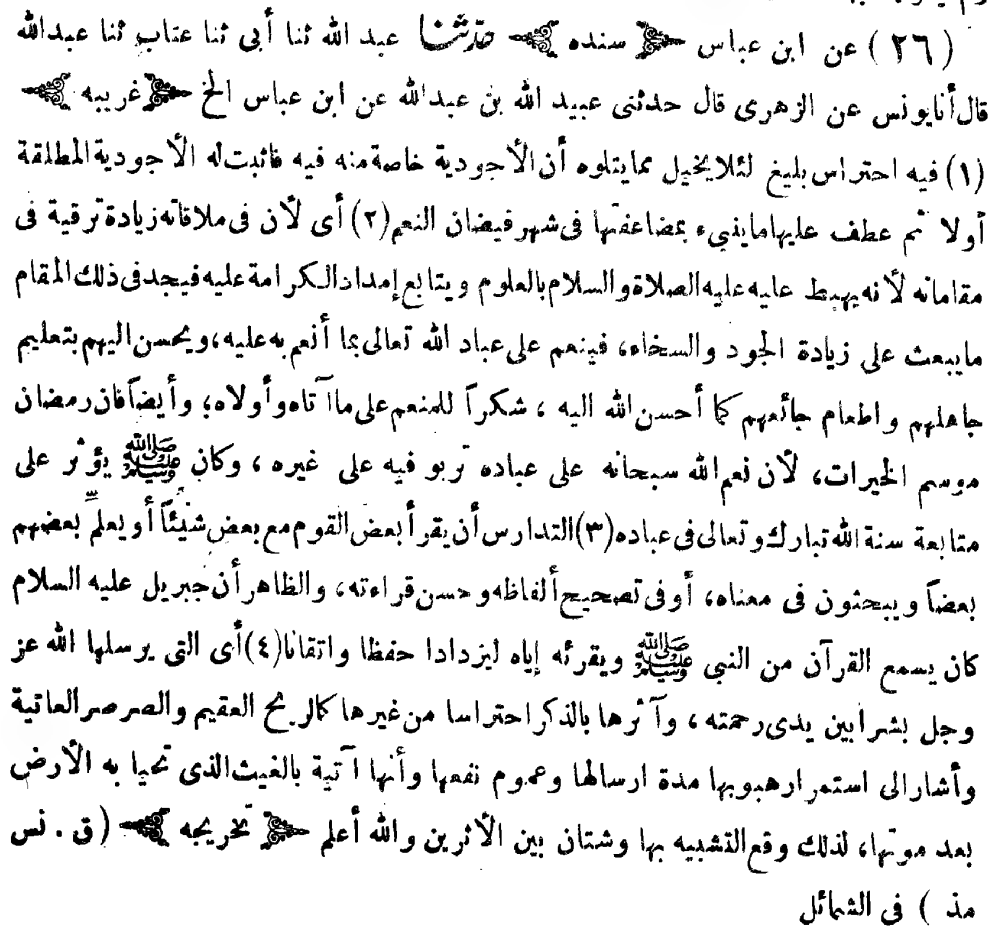 (٢٦) عن ابن عباس سنده حدثنا عبد الله ثنا أبى ثنا عتاب ثنا عبدالله
قال أنا يونس عن الزهرى قال حدثنى عبيد الله بن عبدالله عن ابن عباس الخ غريبه
(١) فيه احتراس بليغ لئلا يخيل مما يتلوه أن الأجودية خاصة منه فيه فاثبت له الأجودية المطلقة
أولا ثم عطف عليها ما ينبىء بمضاعفتها فى شهر فيضان النعم (٢) أى لأن فى ملاقاته زيادة ترقية فى
مقاماته لأنه يهبط عليه عليه الصلاة والسلام بالعلوم ويتابع إمداد الكرامة عليه فيجد فى ذلك المقام
ما يبعث على زيادة الجود والسخاء، فينعم على عباد الله تعالى بما أنعم به عليه، ويحسن اليهم بتعليم
جاهلهم واطعام جائعهم كما أحسن الله اليه ، شكراً للمنعم على ما آتاه وأولاه؛ وأيضاً فان رمضان
موسم الخيرات، لأن نعم الله سبحانه على عباده تربو فيه على غيره ، وكان ﷺ يؤثر على
متابعة سنة الله تبارك وتعالى فى عباده (٣) التدارس أن يقرأ بعض القوم مع بعض شيئاً أو يعلِّم بعضهم
بعضاً ويبحثون فى معناه، أو فى تصحيح ألفاظه وحسن قراءته، والظاهر أن جبريل عليه السلام
كان يسمع القرآن من النبى ﷺ ويقرئه إياه ليزدادا حفظا واتقانا (٤) أى التى يرسلها الله عز
وجل بشرا بين يدى رحمته ، وآثرها بالذكر احتراسا من غيرها كالريح العقيم والصرصر العاتية
وأشار الى استمرار هبوبها مدة ارسالها وعموم نفعها وأنها آتية بالغيث الذى تحيا به الأرض
بعد موتها، لذلك وقع التشبيه بها وشتان بين الأثرين والله أعلم تخريجه (ق . نس
مذ ) فى الشمائل